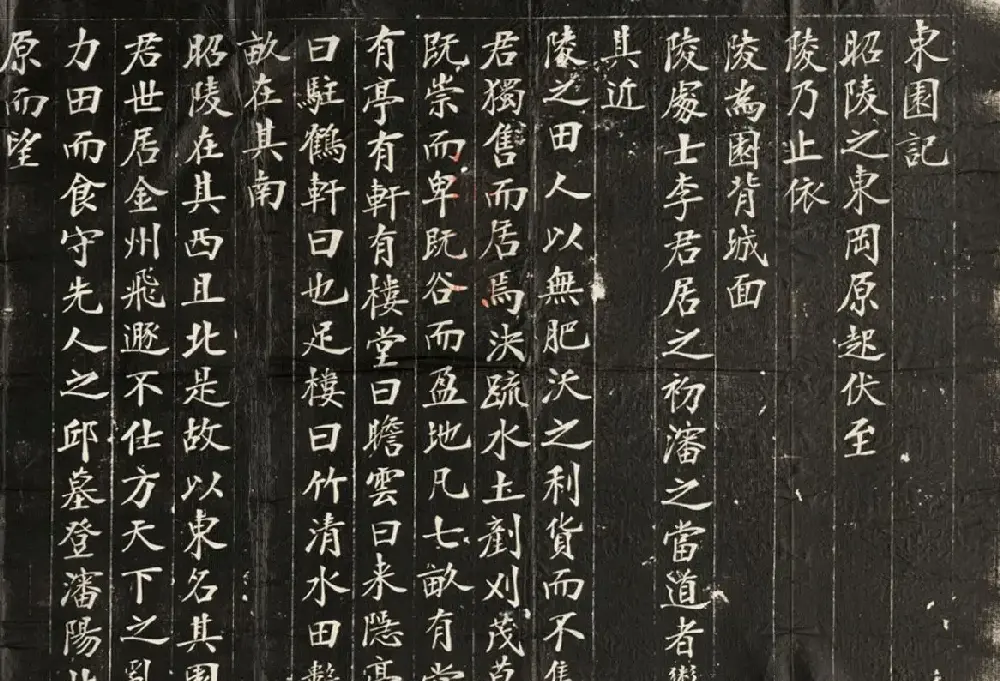 東園記
昭陵之東岡原起伏至
陵乃止依
陵為園背城面
陵處士李君居之初瀋之當道者鬻
其近
陵之田人以無肥沃之利貨而不售
君獨售而居焉決疏水土剷刈茂草
既崇而卑既谷而盈地凡七畝有堂
有亭有軒有樓堂曰瞻雲曰来隱亭
曰駐鶴軒曰也足樓曰竹清水田數
畝在其南
昭陵在其西且北是故以東名其園
君世居金州飛遯不仕方天下之亂
力田而食守先人之邱墓登瀋陽
原而望